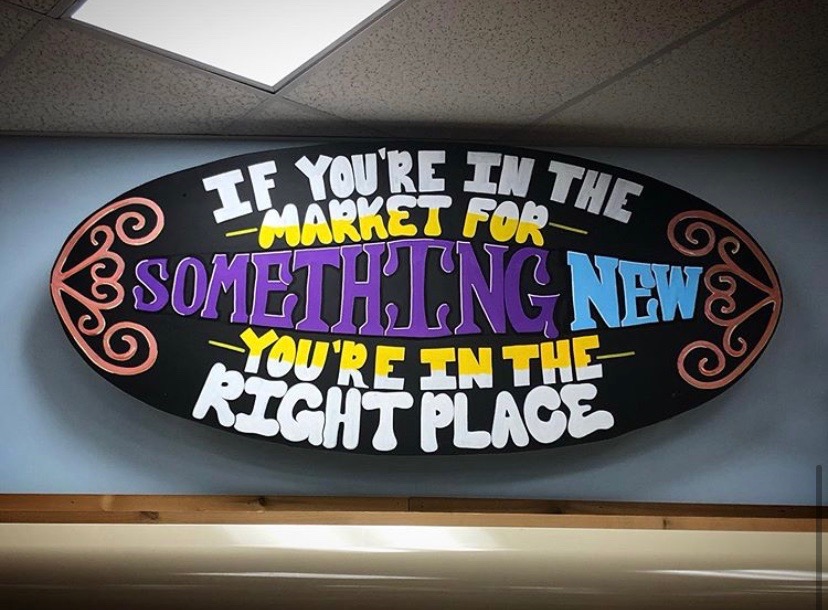 IF YOU'RE IN THE
MARKET FOR
SOMETHING NEW
YOU'RE IN THE
RIGHT PLACE